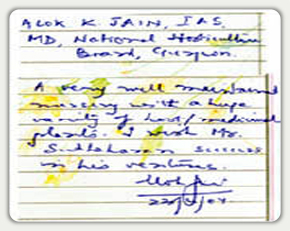 ALOK K. JAIN, IAS,
MD, National Horticulture
Board, Gurgaon.
A very well maintained
nursery with a huge
variety of hort/medicinal
plants. I wish Mr.
success
in his ventures.